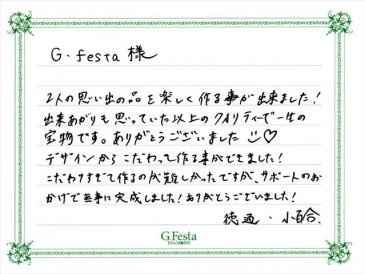 G・festa 様
2人の思い出の品を楽しく作る事が出来ました！
出来あがりも思っていた以上のクオリティーで一生の
宝物です。ありがとうございました
デザインからこだわって作る事ができました！
こだわりすぎて作るのが難しかったですが、サポートのお
かげで無事に完成しました！ありがとうございました！
徳通・小百合
G.Festa
DIAMOND